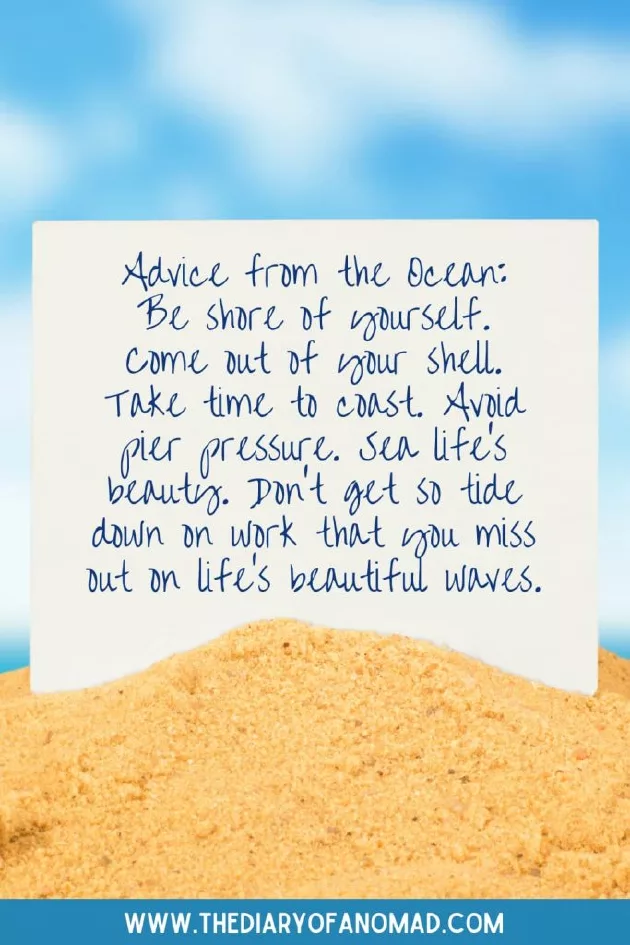 Advice from the Ocean:
Be shore of yourself.
Come out of your shell.
Take time to coast. Avoid
pier pressure. Sea life's
beauty. Don't get so tide
down on work that you miss
out on life's beautiful waves.
WWW.THEDIARYOFANOMAD.COM